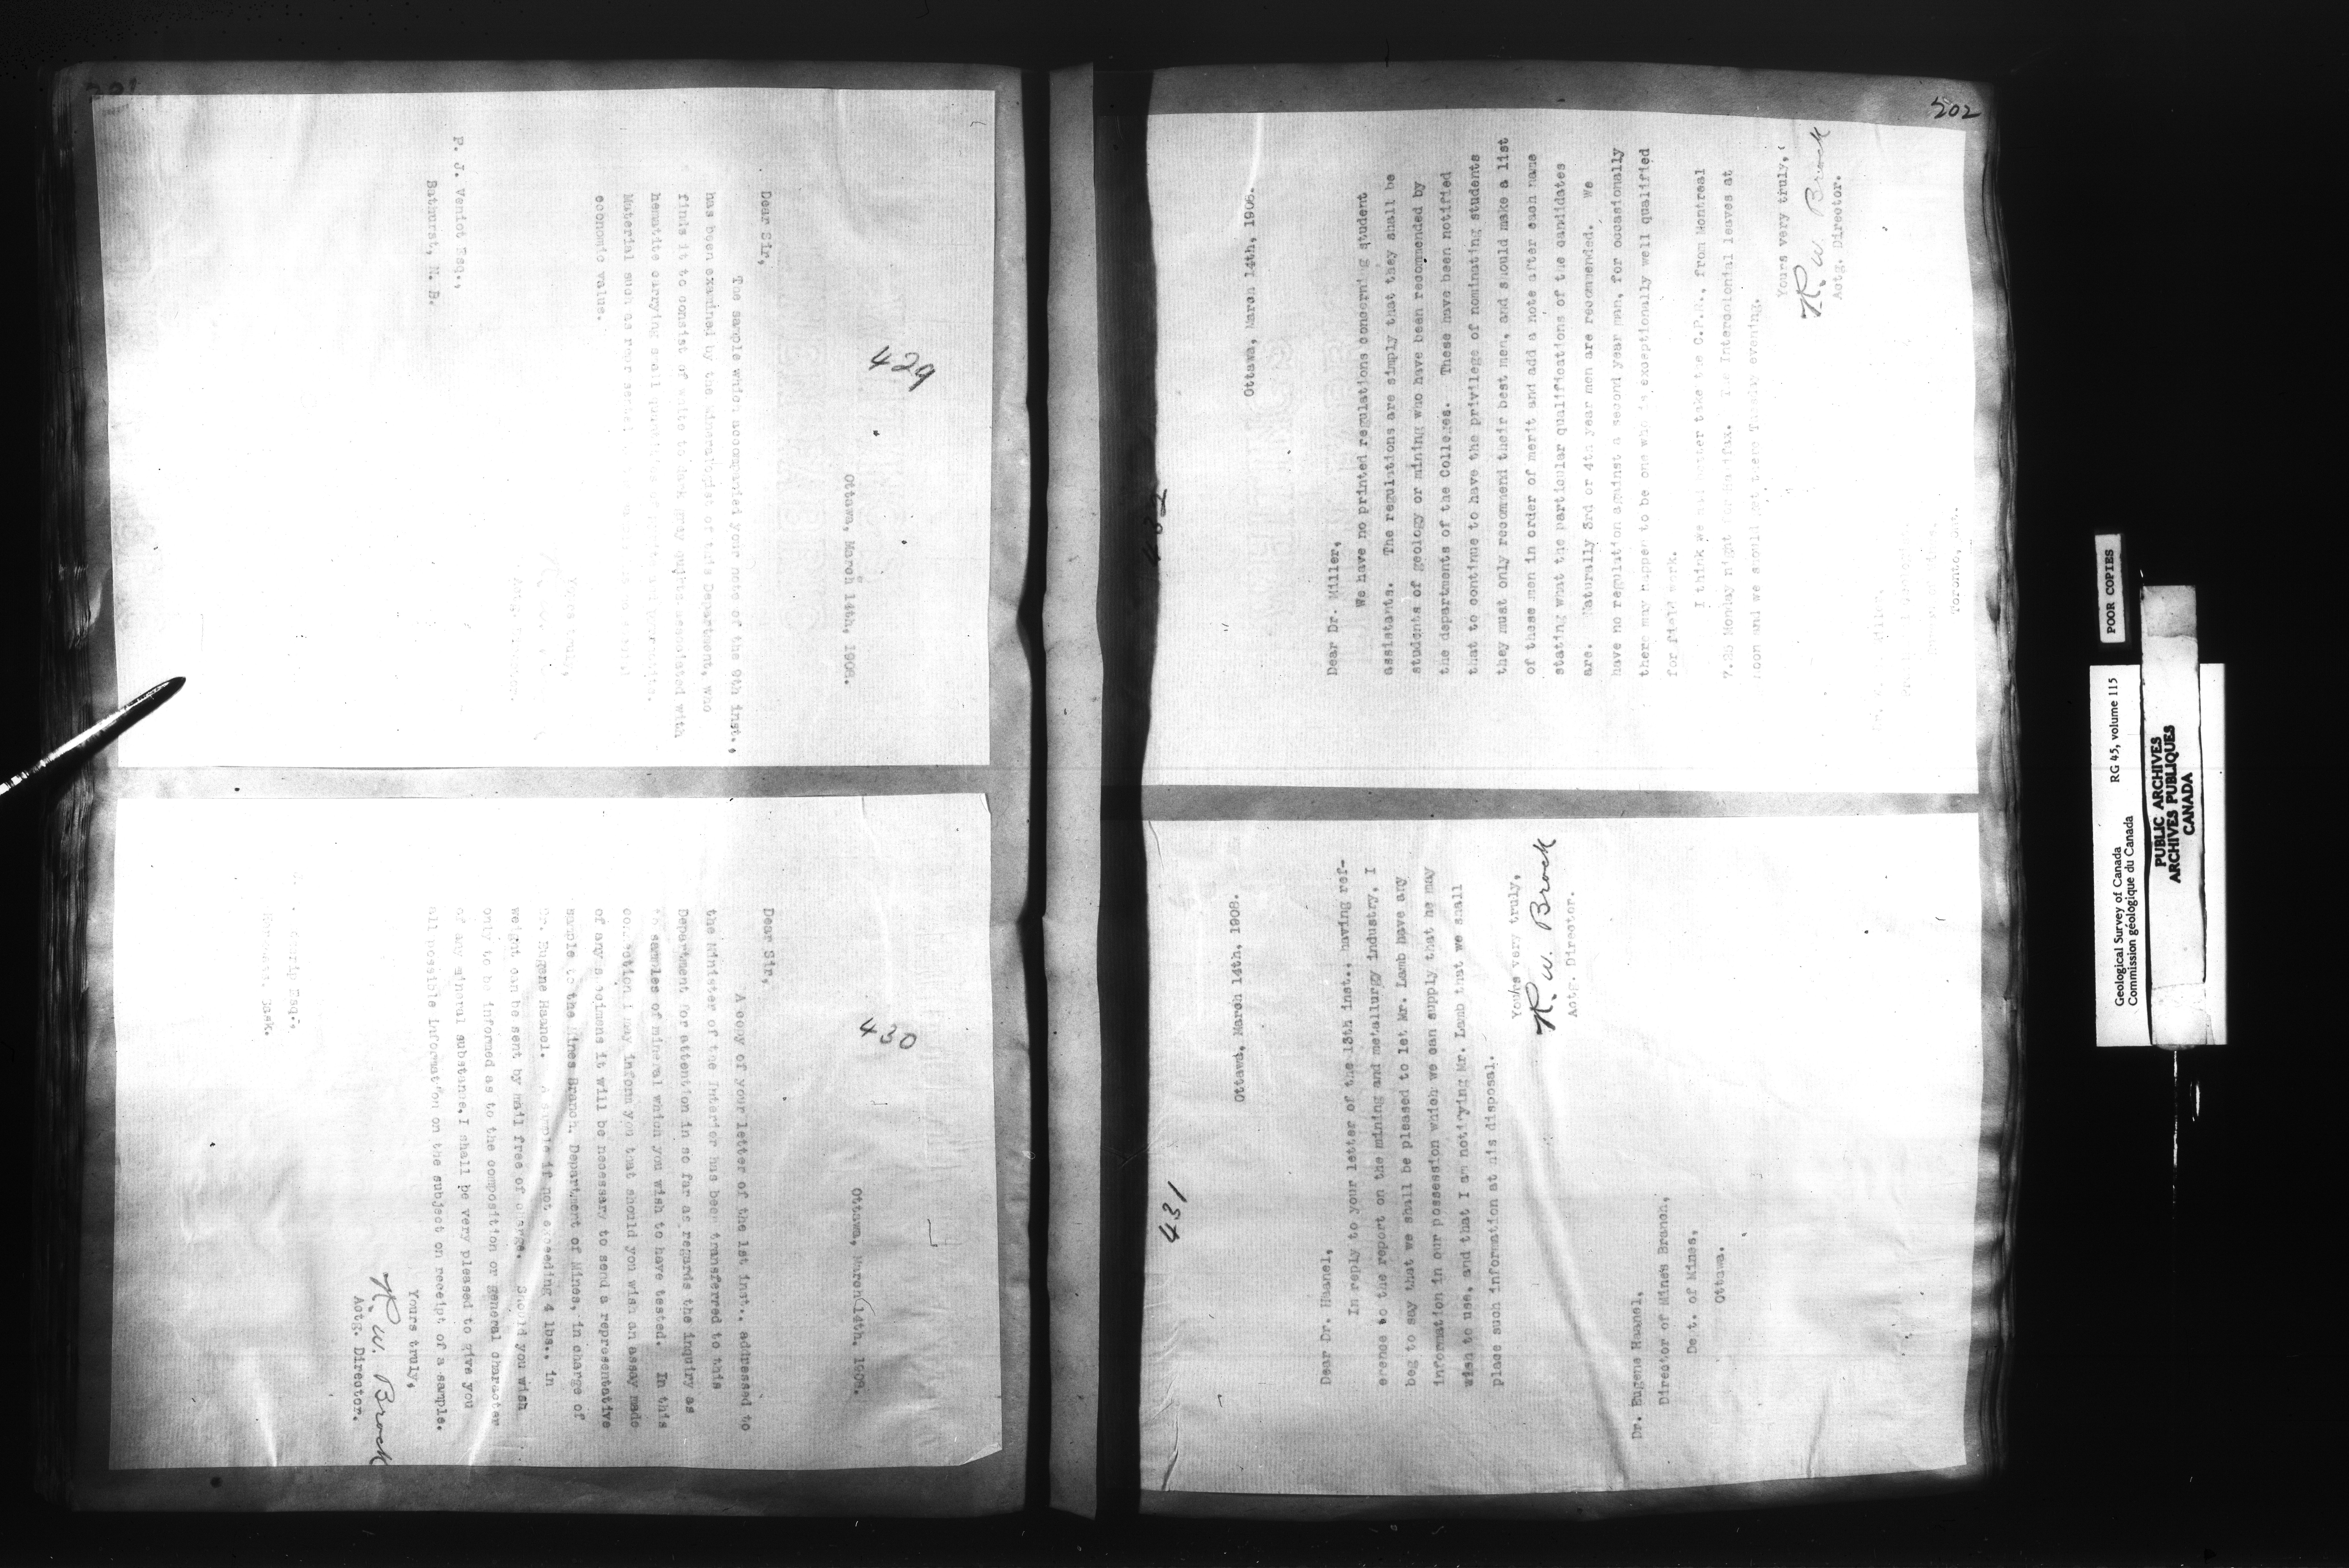 201
429
Ottawa, March 14th, 1908.
Dear Sir,
The sample which accompanied your note of the 9th inst.,
has been examined by the Mineralogist of this Department, who
finds it to consist of white to dark gray quartz associated with
hematite carrying small quantities of
Material such as
economic value.
Yours truly,
Actg. Director.
P. J. Veniot Esq.,
Bathurst, N. B.
430
Ottawa, March 14th, 1908.
Dear Sir,
A copy of your letter of the 1st inst., addressed to
the Minister of the Interior has been transferred to this
Department for attention in so far as regards the inquiry as
to samples of mineral which you wish to have tested. In this
connection I may inform you that should you wish an assay made
of any specimens it will be necessary to send a representative
sample to the Mines Branch, Department of Mines, in charge of
Dr. Eugene Haanel. A sample if not exceeding 4 lbs., in
weight can be sent by mail free of charge. Should you wish
only to be informed as to the composition or general character
of any mineral substance, I shall be very pleased to give you
all possible information on the subject on receipt of a sample.
Yours truly,
R. W. Brock
Actg. Director.
Esq.,
Sask.
202
432
Ottawa, March 14th, 1908.
Dear Dr. Miller,
We have no printed regulations concerning student
assistants. The regulations are simply that they shall be
students of geology or mining who have been recommended by
the departments of the Colleges. These have been notified
that to continue to have the privilege of nominating students
they must only recommend their best men, and should make a list
of these men in order of merit and add a note after each name
stating what the particular qualifications of the candidates
are. Naturally 3rd or 4th year men are recommended. We
have no regulation against a second year man, for occasionally
there may happen to be one who is exceptionally well qualified
for field work.
I think we had better take the C.P.R., from Montreal
7.25 Monday night for Halifax. The Intercolonial leaves at
noon and we should get there Tuesday evening.
Yours very truly,
R. W. Brock
Actg. Director.
Miller,
Toronto, Ont.
431
Ottawa, March 14th, 1908.
Dear Dr. Haanel,
In reply to your letter of the 13th inst., having ref-
erence to the report on the mining and metallurgy industry, I
beg to say that we shall be pleased to let Mr. Lamb have any
information in our possession which we can supply that he may
wish to use, and that I am notifying Mr. Lamb that we shall
place such information at his disposal.
Yours very truly,
R. W. Brock
Actg. Director.
Dr. Eugene Haanel,
Director of Mines Branch,
De t. of Mines,
Ottawa.
POOR COPIES
Geological Survey of Canada RG 45, volume 115
Commission géologique du Canada
PUBLIC ARCHIVES
ARCHIVES PUBLIQUES
CANADA